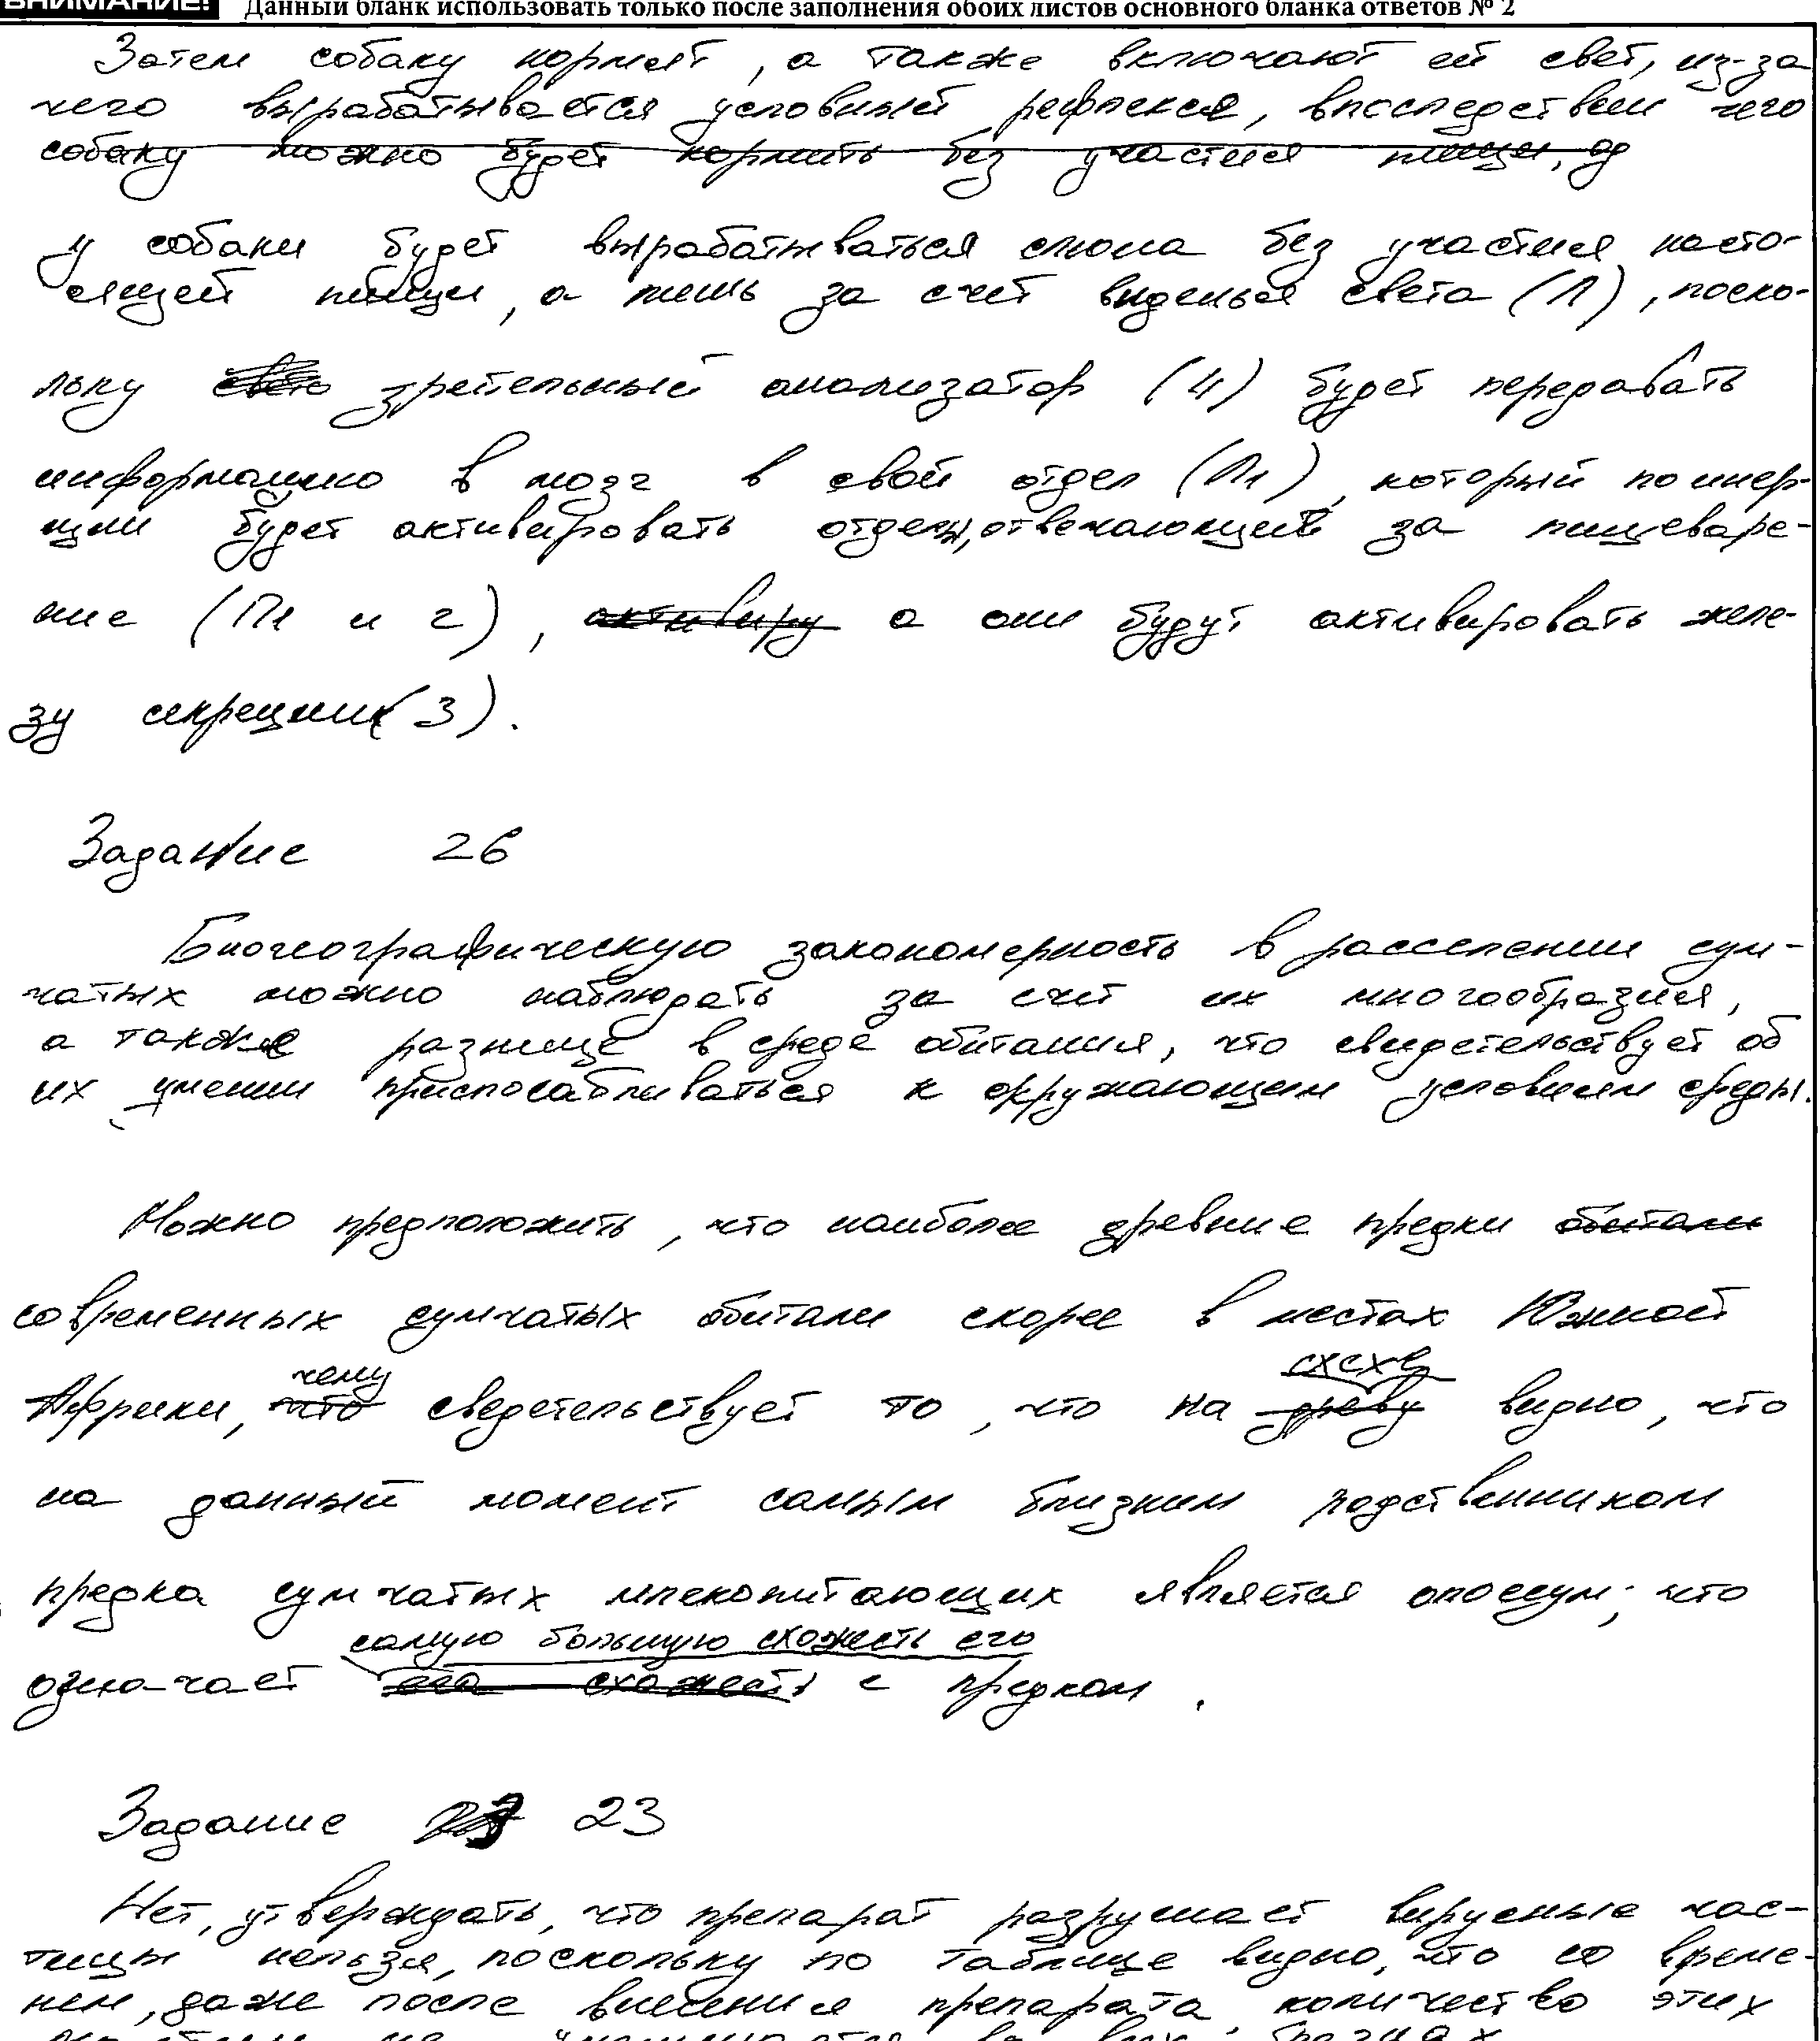 ВНИМАНИЕ! Данный бланк использовать только после заполнения обоих листов основного бланка ответов № 2
Затем собаку кормят, а также включают ей свет, из-за
чего вырабатывается условный рефлекся, впоследствии чего
собаку можно будет кормить без участия пищи, од
у собаки будет вырабатываться слюна без участия насто-
ящей пищи, а лишь за счет виденья света (Л), поско-
льку свето зрительный анализатор (4) будет передавать
информацию в мозг в свой отдел (П1), который по инер-
ции будет активировать отделы, отвечающие за пищеваре-
ние (П1 и 2), активиру а они будут активировать желе-
зу секреции (3).
Задание 26
Биогеографическую закономерность в расселении сум-
чатых можно наблюдать за счет их многообразия,
а также разнице в среде обитания, что свидетельствует об
их умении приспосабливаться к окружающим условиям среды.
Можно предположить, что наиболее древние предки обитали
современных сумчатых обитали скорее в местах Южной
Африки, что чему сведетельствует то, что на древу схеме видно, что
на данный момент самым близким родственником
предка сумчатых млекопитающих является опоссум, что
означает его схожесть самую большую схожесть его с предком.
Задание 23
Нет, утверждать, что препарат разрушает вирусные час-
тицы нельзя, поскольку по таблице видно, что со време-
нем, даже после внесения препарата, количество этих